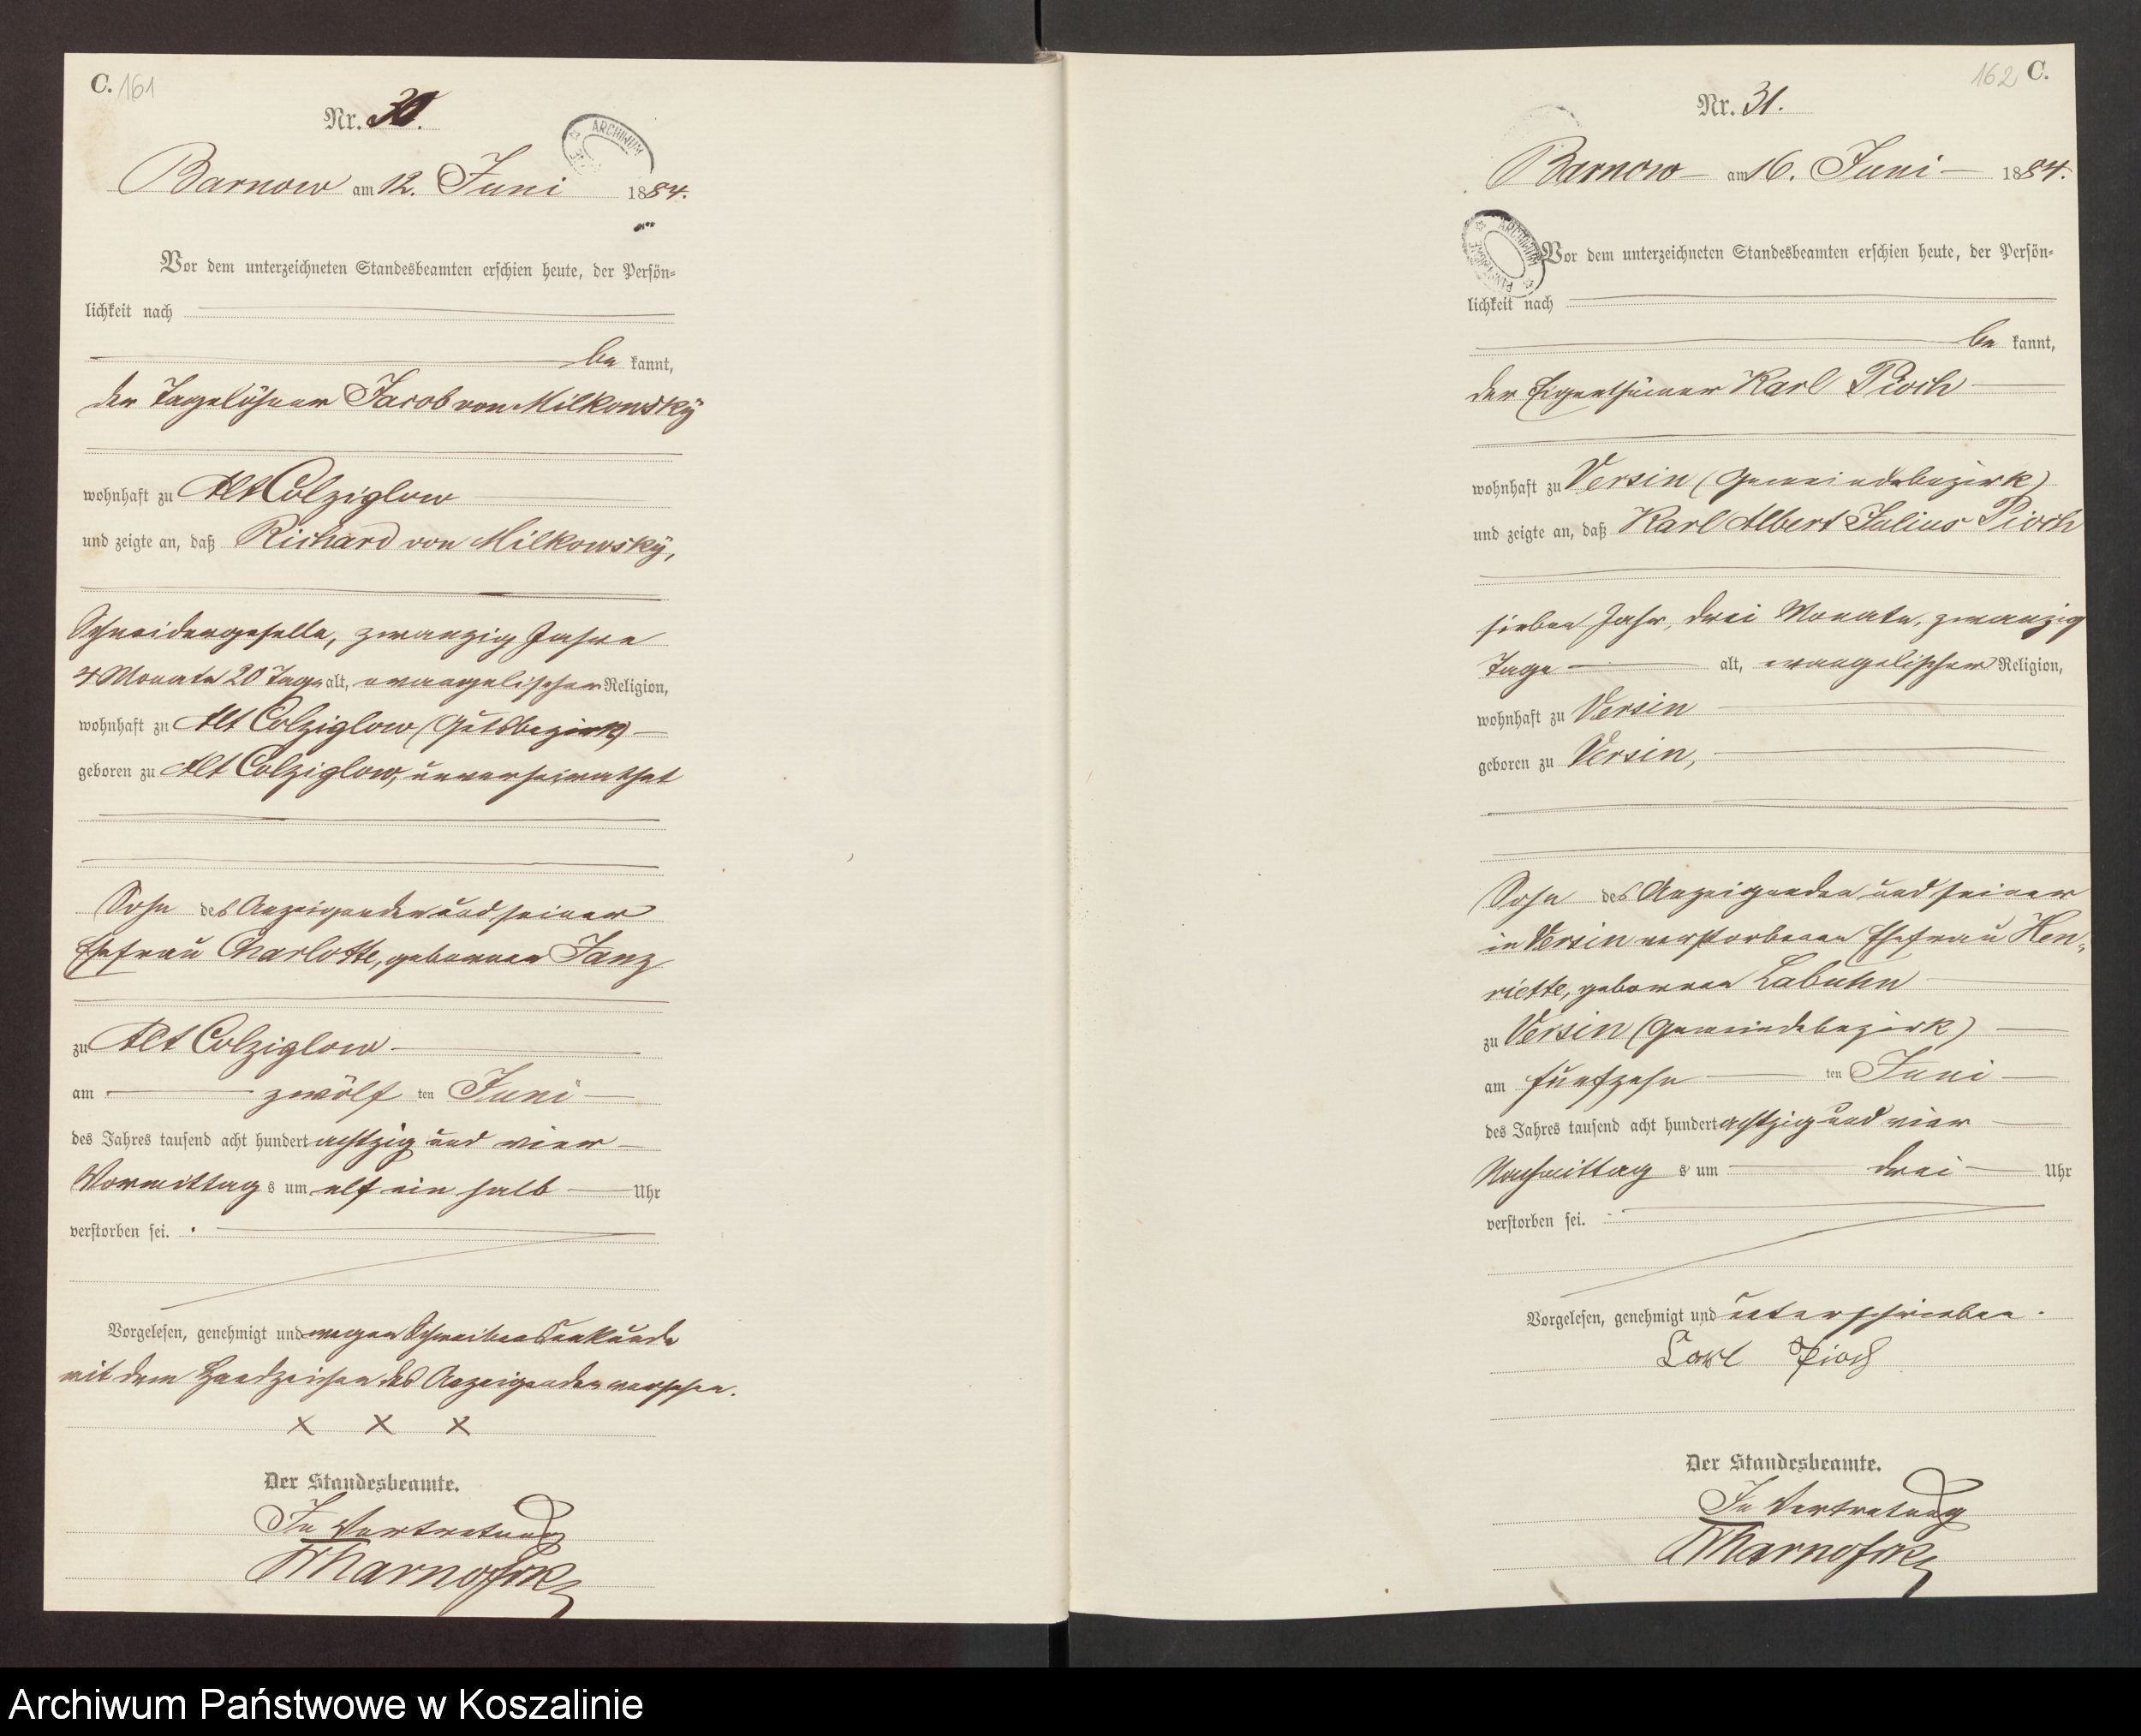 C. 161
Nr. 30.
Barnow am 12. Juni 1884.
ARCHIWUM
Vor dem unterzeichneten Standesbeamten erschien heute, der Persön-
lichkeit nach
be kannt,
der Tagelöhner Jacob von Milkowsky
wohnhaft zu Alt Colziglow
und zeigte an, daß Richard von Milkowsky,
Schneidergeselle, zwanzig Jahre
4 Monate 20 Tage alt, evangelischer Religion,
wohnhaft zu Alt Colziglow (Gutsbezirk)
geboren zu Alt Colziglow, unverheirathet
Sohn des Anzeigenden und seiner
Ehefrau Charlotte, geborenen Janz
zu Alt Colziglow
am zwölf ten Juni
des Jahres tausend acht hundert achtzig und vier
Vormittag s um elf ein halb Uhr
verstorben sei.
Vorgelesen, genehmigt und wegen Schreibensunkunde
mit dem Handzeichen des Anzeigenden versehen.
x x x
Der Standesbeamte.
In Vertretung
162 C.
Nr. 31.
Barnow am 16. Juni 1884.
ARCHIWUM
Vor dem unterzeichneten Standesbeamten erschien heute, der Persön-
lichkeit nach
be kannt,
der Eigenthümer Karl Pioch
wohnhaft zu Versin (Gemeindebezirk)
und zeigte an, daß Karl Albert Julius Pioch
sieben Jahr, drei Monate, zwanzig
Tage alt, evangelischer Religion,
wohnhaft zu Versin
geboren zu Versin,
Sohn des Anzeigenden und seiner
in Versin verstorbenen Ehefrau Hen-
riette, geborenen Labuhn
zu Versin (Gemeindebezirk)
am fünfzehn ten Juni
des Jahres tausend acht hundert achtzig und vier
Nachmittag s um drei Uhr
verstorben sei.
Vorgelesen, genehmigt und unterschrieben.
Carl Pioch
Der Standesbeamte.
In Vertretung
Archiwum Państwowe w Koszalinie